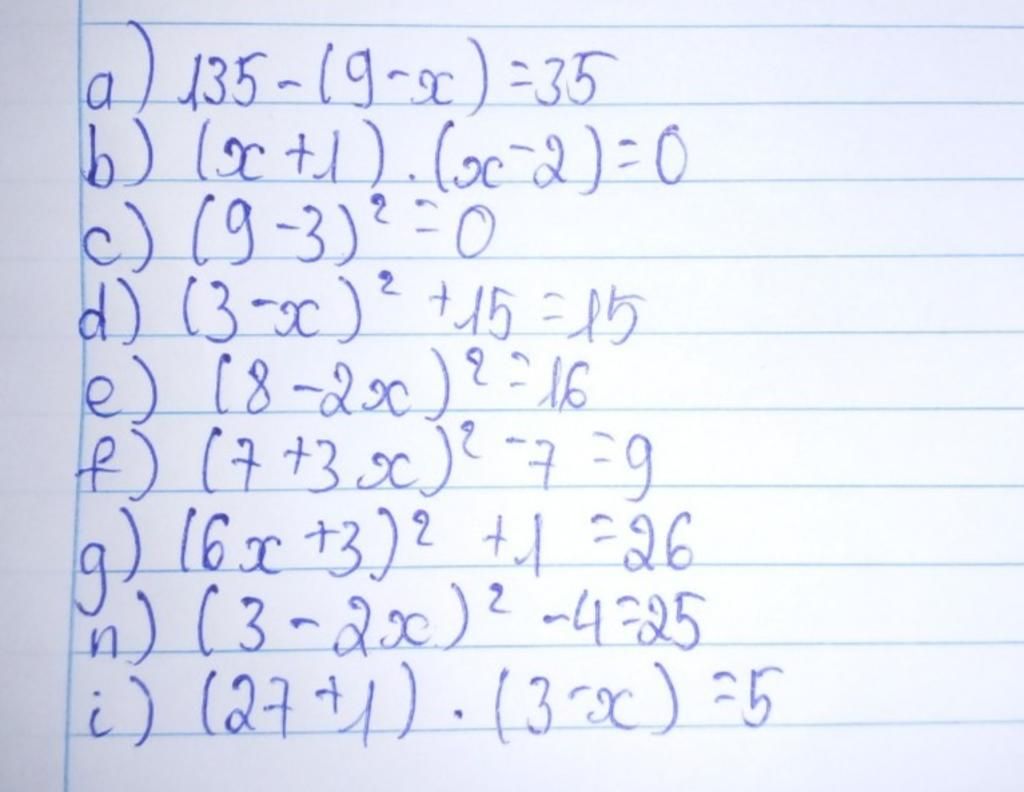 a) 135-(9-x)=35
b) (x+1).(x-2)=0
c) (9-3)²=0
d) (3-x)²+15=15
e) (8-2x)²=16
f) (7+3x)²-7=9
g) (6x+3)²+1=26
n) (3-2x)²-4=25
i) (27+1).(3-x)=5